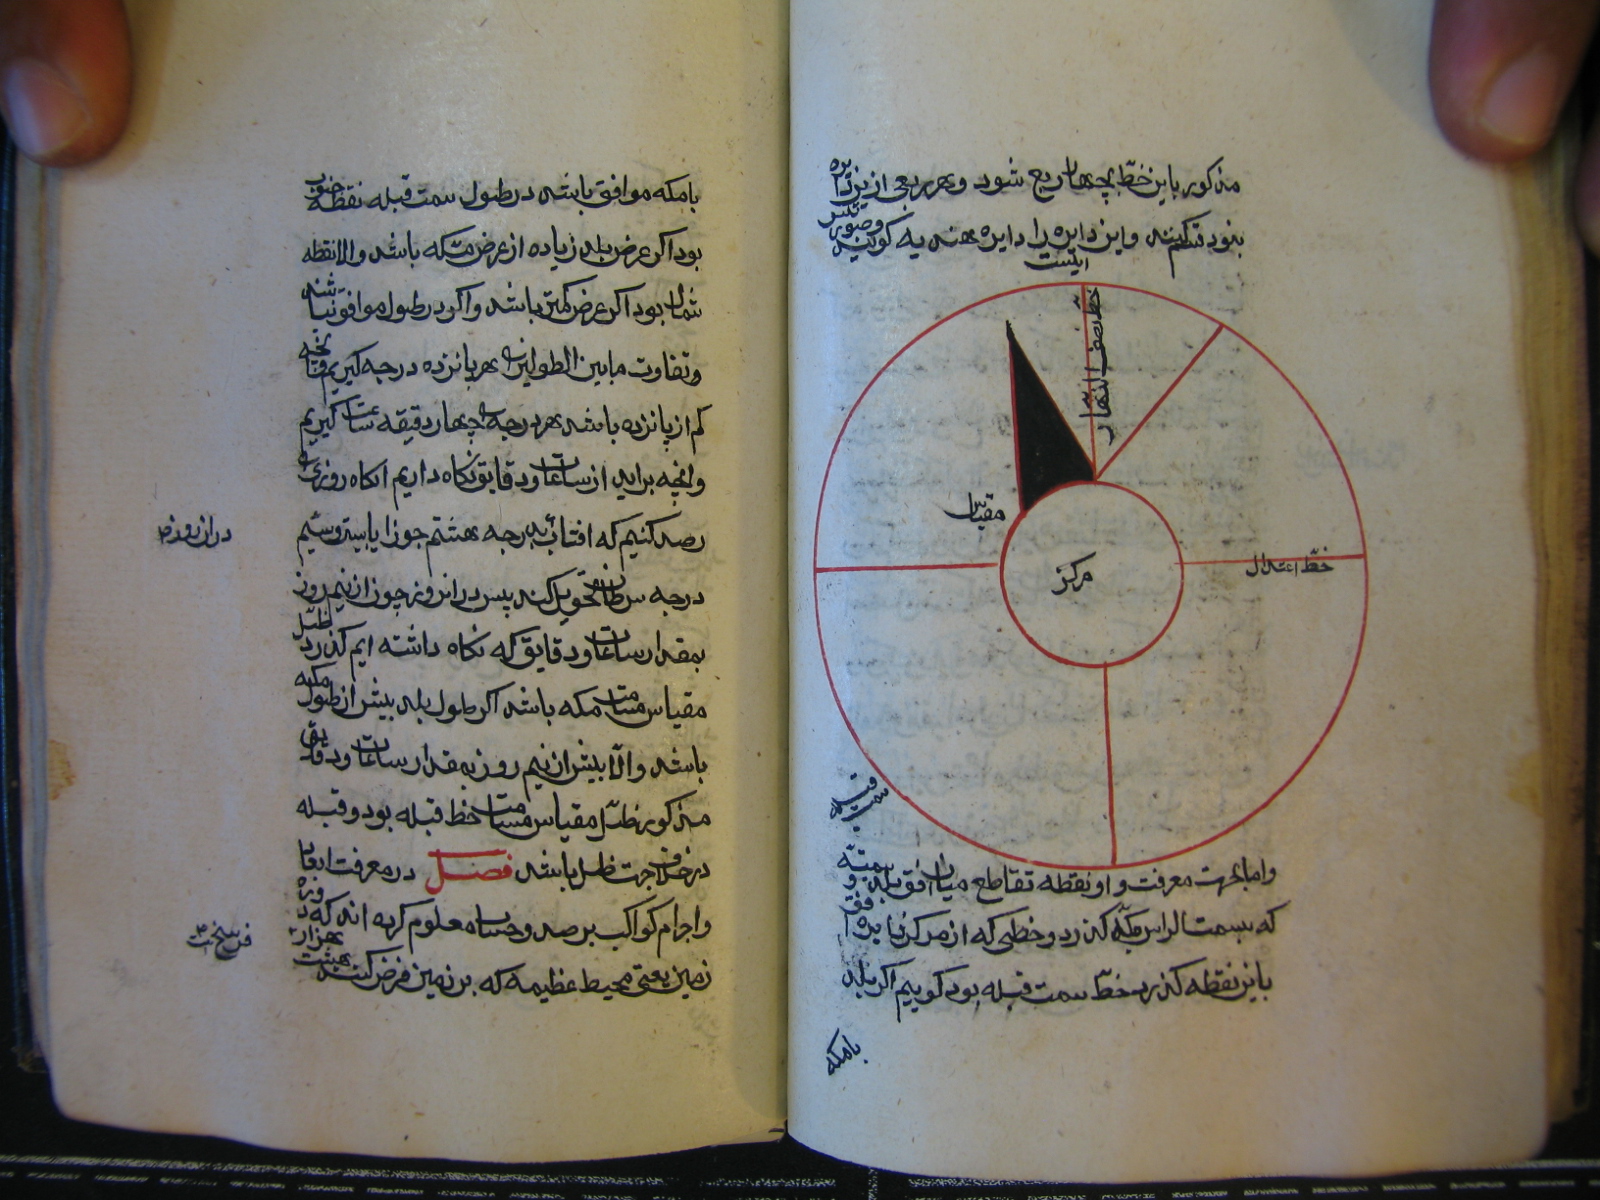 مذکور باین خطّ بچهار ربع شود و هر ربعی از این دایره
بنود قسمت کنند و این دایره را دایره هندیه کویند و صورتش
اینست
خطّ نصف النّهار
مقیاس
مرکز
خطّ اعتدال
سمت قبله
واما بجهت معرفت و او نقطه تقاطع میان افق بلد و
که بسمت الراس مکّه کذرد و خطی که از مرکز دایره افق
باین نقطه کذرد خطّ سمت قبله بود کوییم اکر بلد
بامکه
بامکه موافق باشد در طول سمت قبله نقطه جنوب
بود اکر عرض بلد زیاده از عرض مکه باشد والا نقطه
شمال بود اکر عرض کمتر باشد و اکر در طول موافق نباشد
وتفاوت مابین الطولین را بهر پانزده درجه کیریم
کم از پانزده باشد بهر درجه چهار دقیقه ساعت کیریم
وانچه براید از ساعات و دقایق نکاه داریم انکاه روزی
رصد کنیم که افتاب بدرجه هشتم جوزا یا بیست و سیم
دران روز
درجه سرطان تحویل کند پس در ان روز چون از نیم روز
بمقدار ساعات و دقایق که نکاه داشته ایم کذرد ظلّ
مقیاس مسامت مکه باشد اکر طول بلد بیش از طول مکه
باشد والّا پیش از نیم روز بمقدار ساعات و دقایق
مذکور ظلّ مقیاس مسامت خط قبله بود و قبله
در خلاف جهت ظل باشد فصل در معرفت ابعاد
واجرام کواکب برصد و حساب معلوم کرده اند که دوره
زمین یعنی محیط عظیمه که بر زمین فرض کنند هشت هزار
فرسخ است